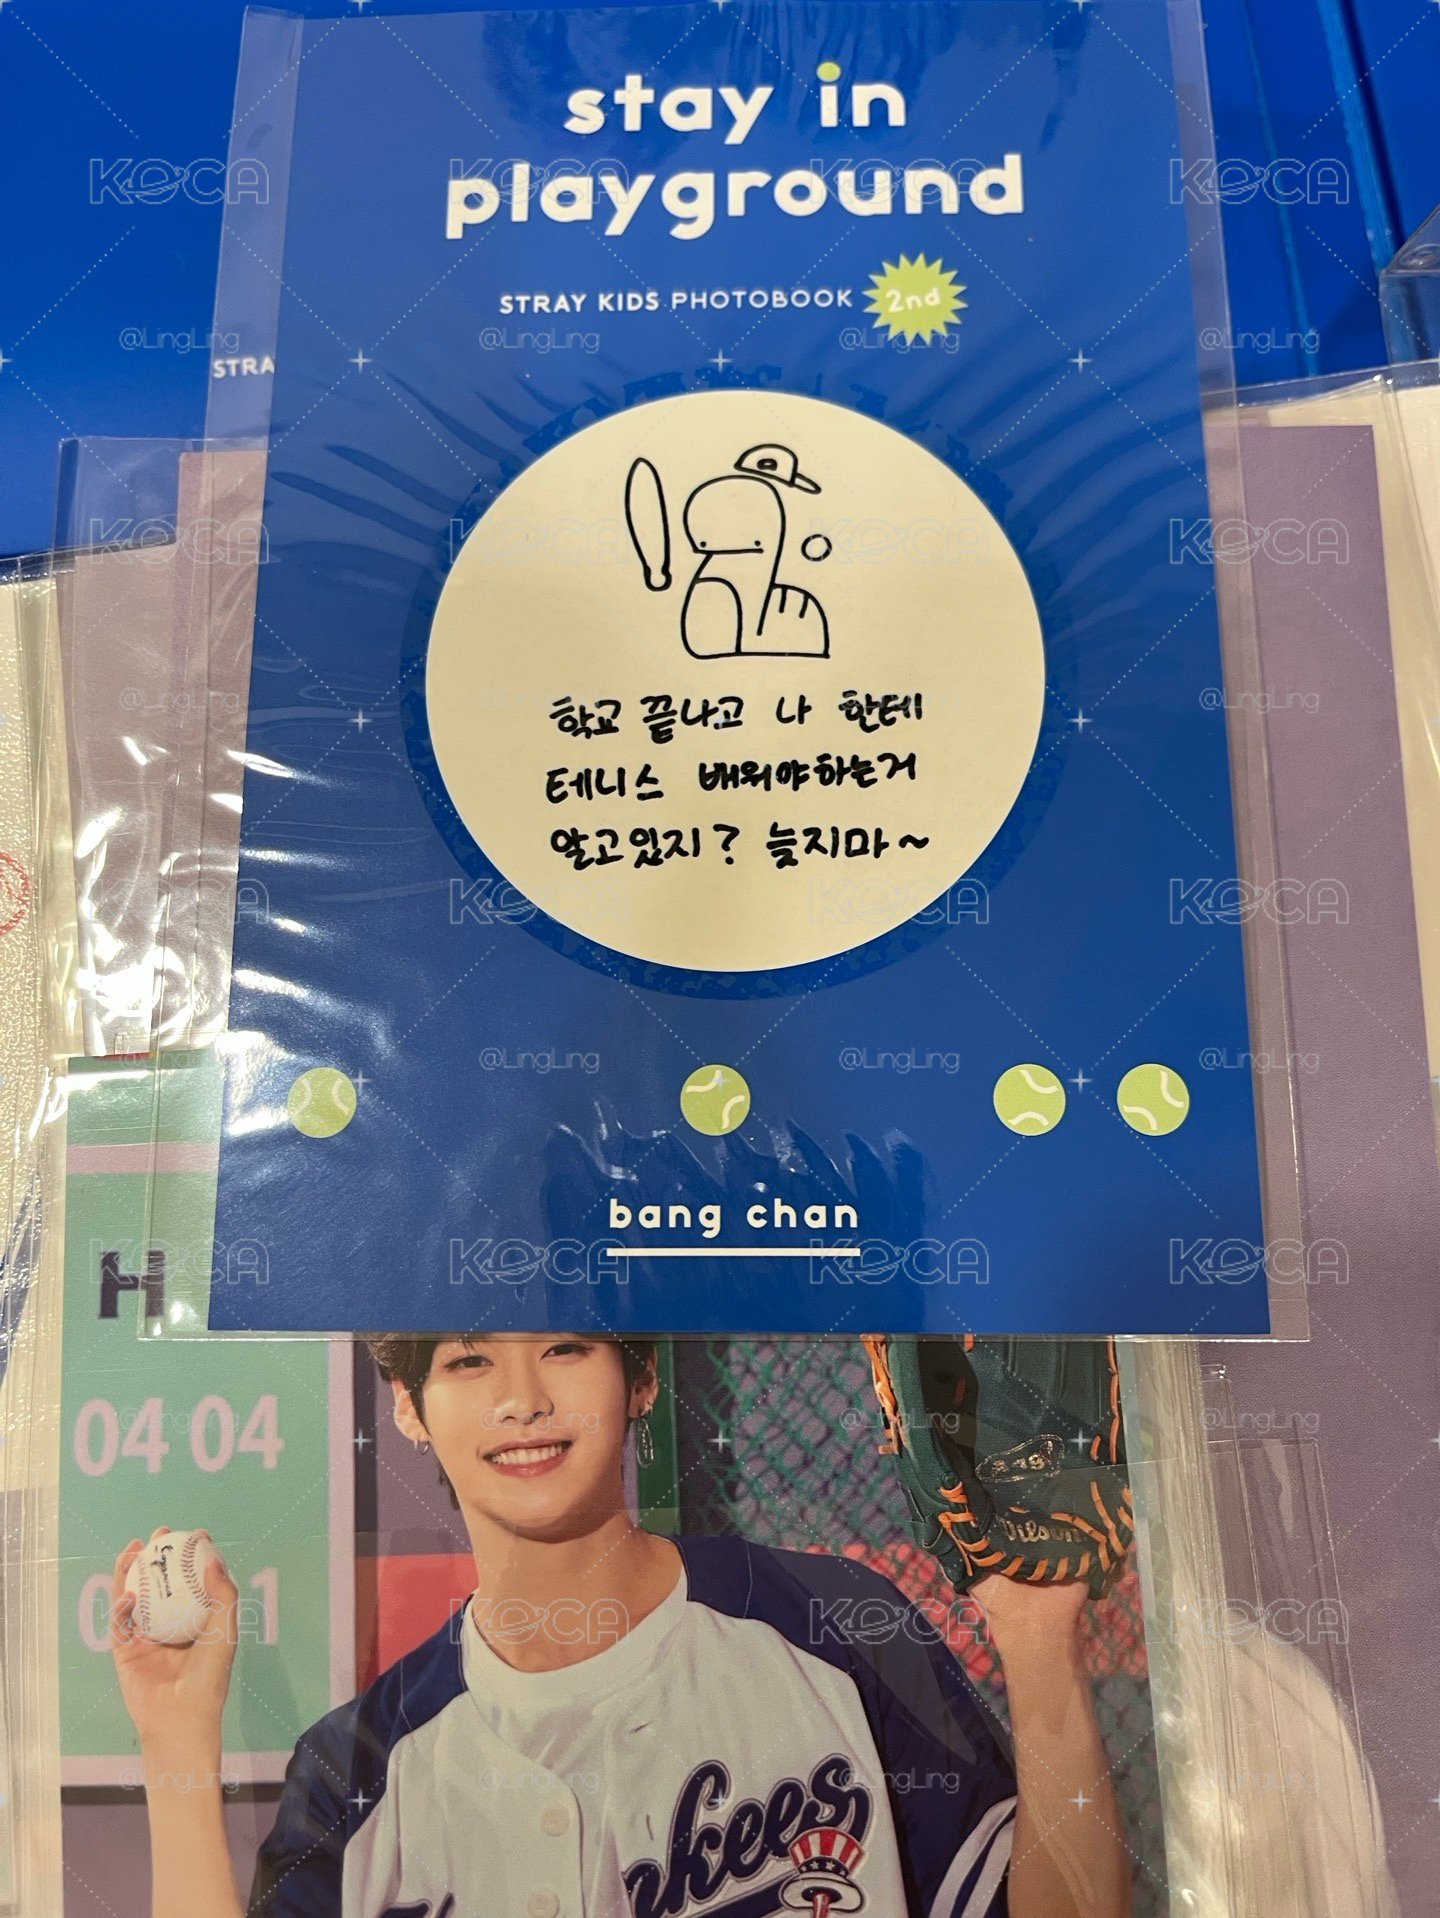 stay in
playground
STRAY KIDS PHOTOBOOK 2nd
STRA
학교 끝나고 나 한테
테니스 배워야하는거
알고있지? 늦지마~
bang chan
H
04 04
1
Wilson
KOCA
@LingLing